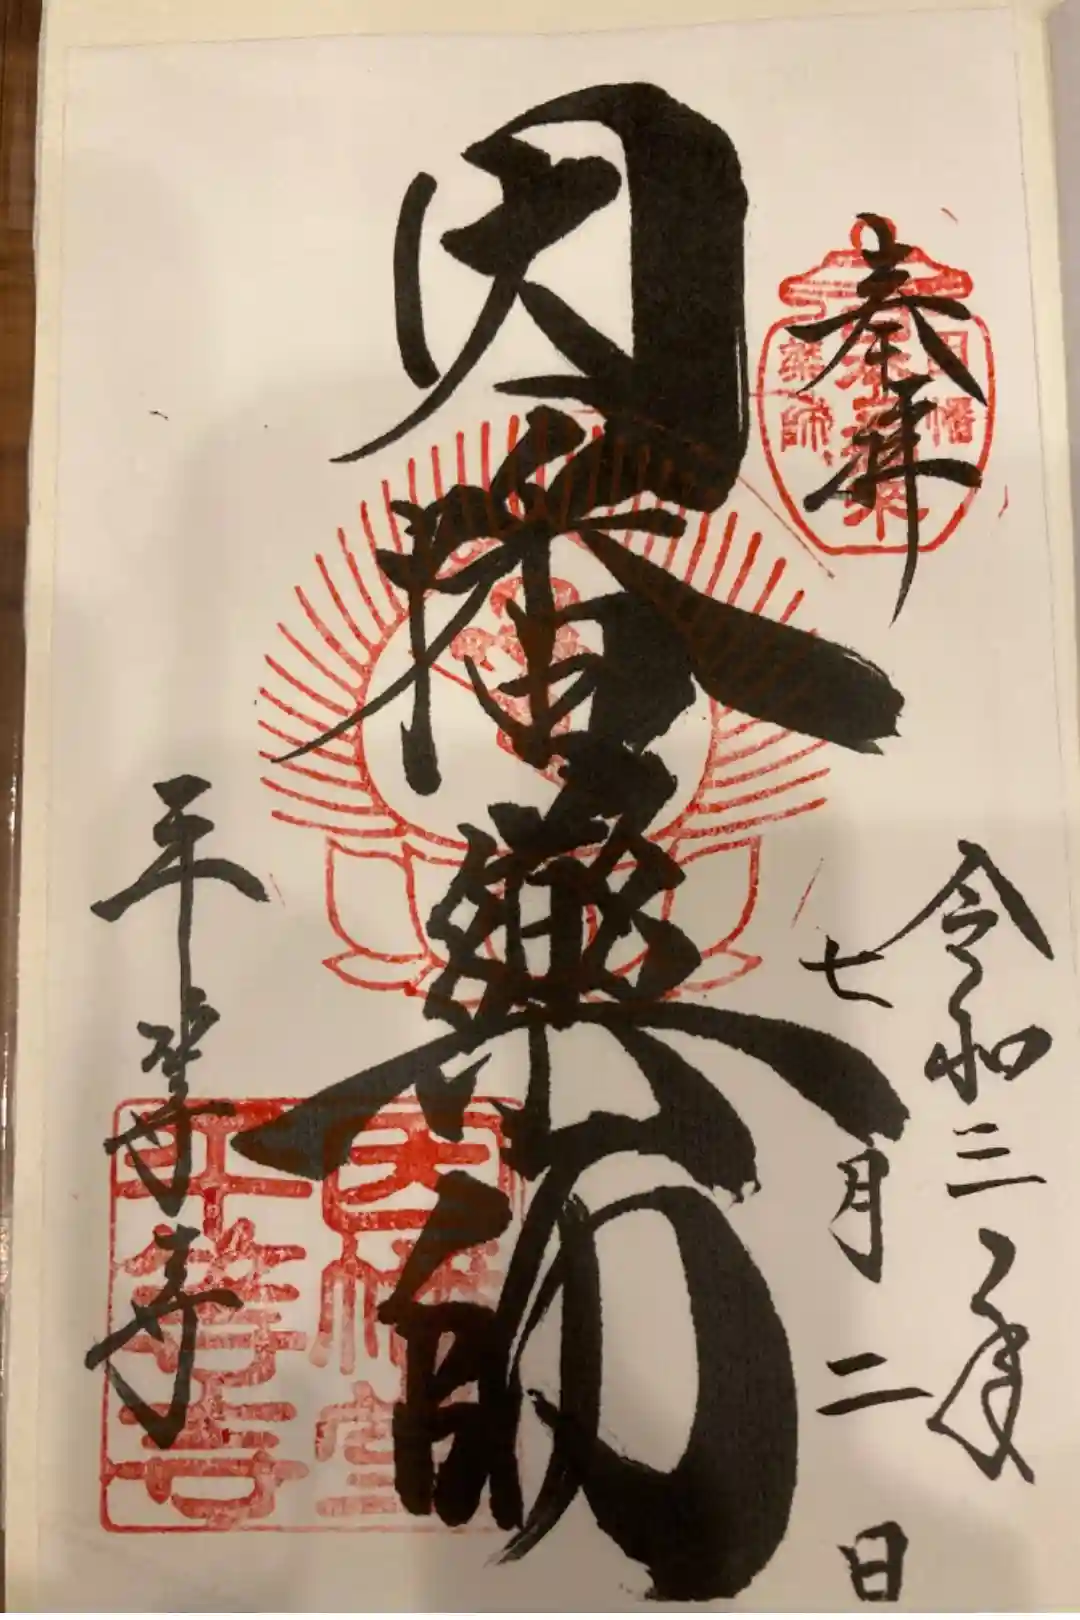 奉拝
令和三年
七月二日
因幡薬師
平等寺
因幡
薬師
因幡堂
平等寺